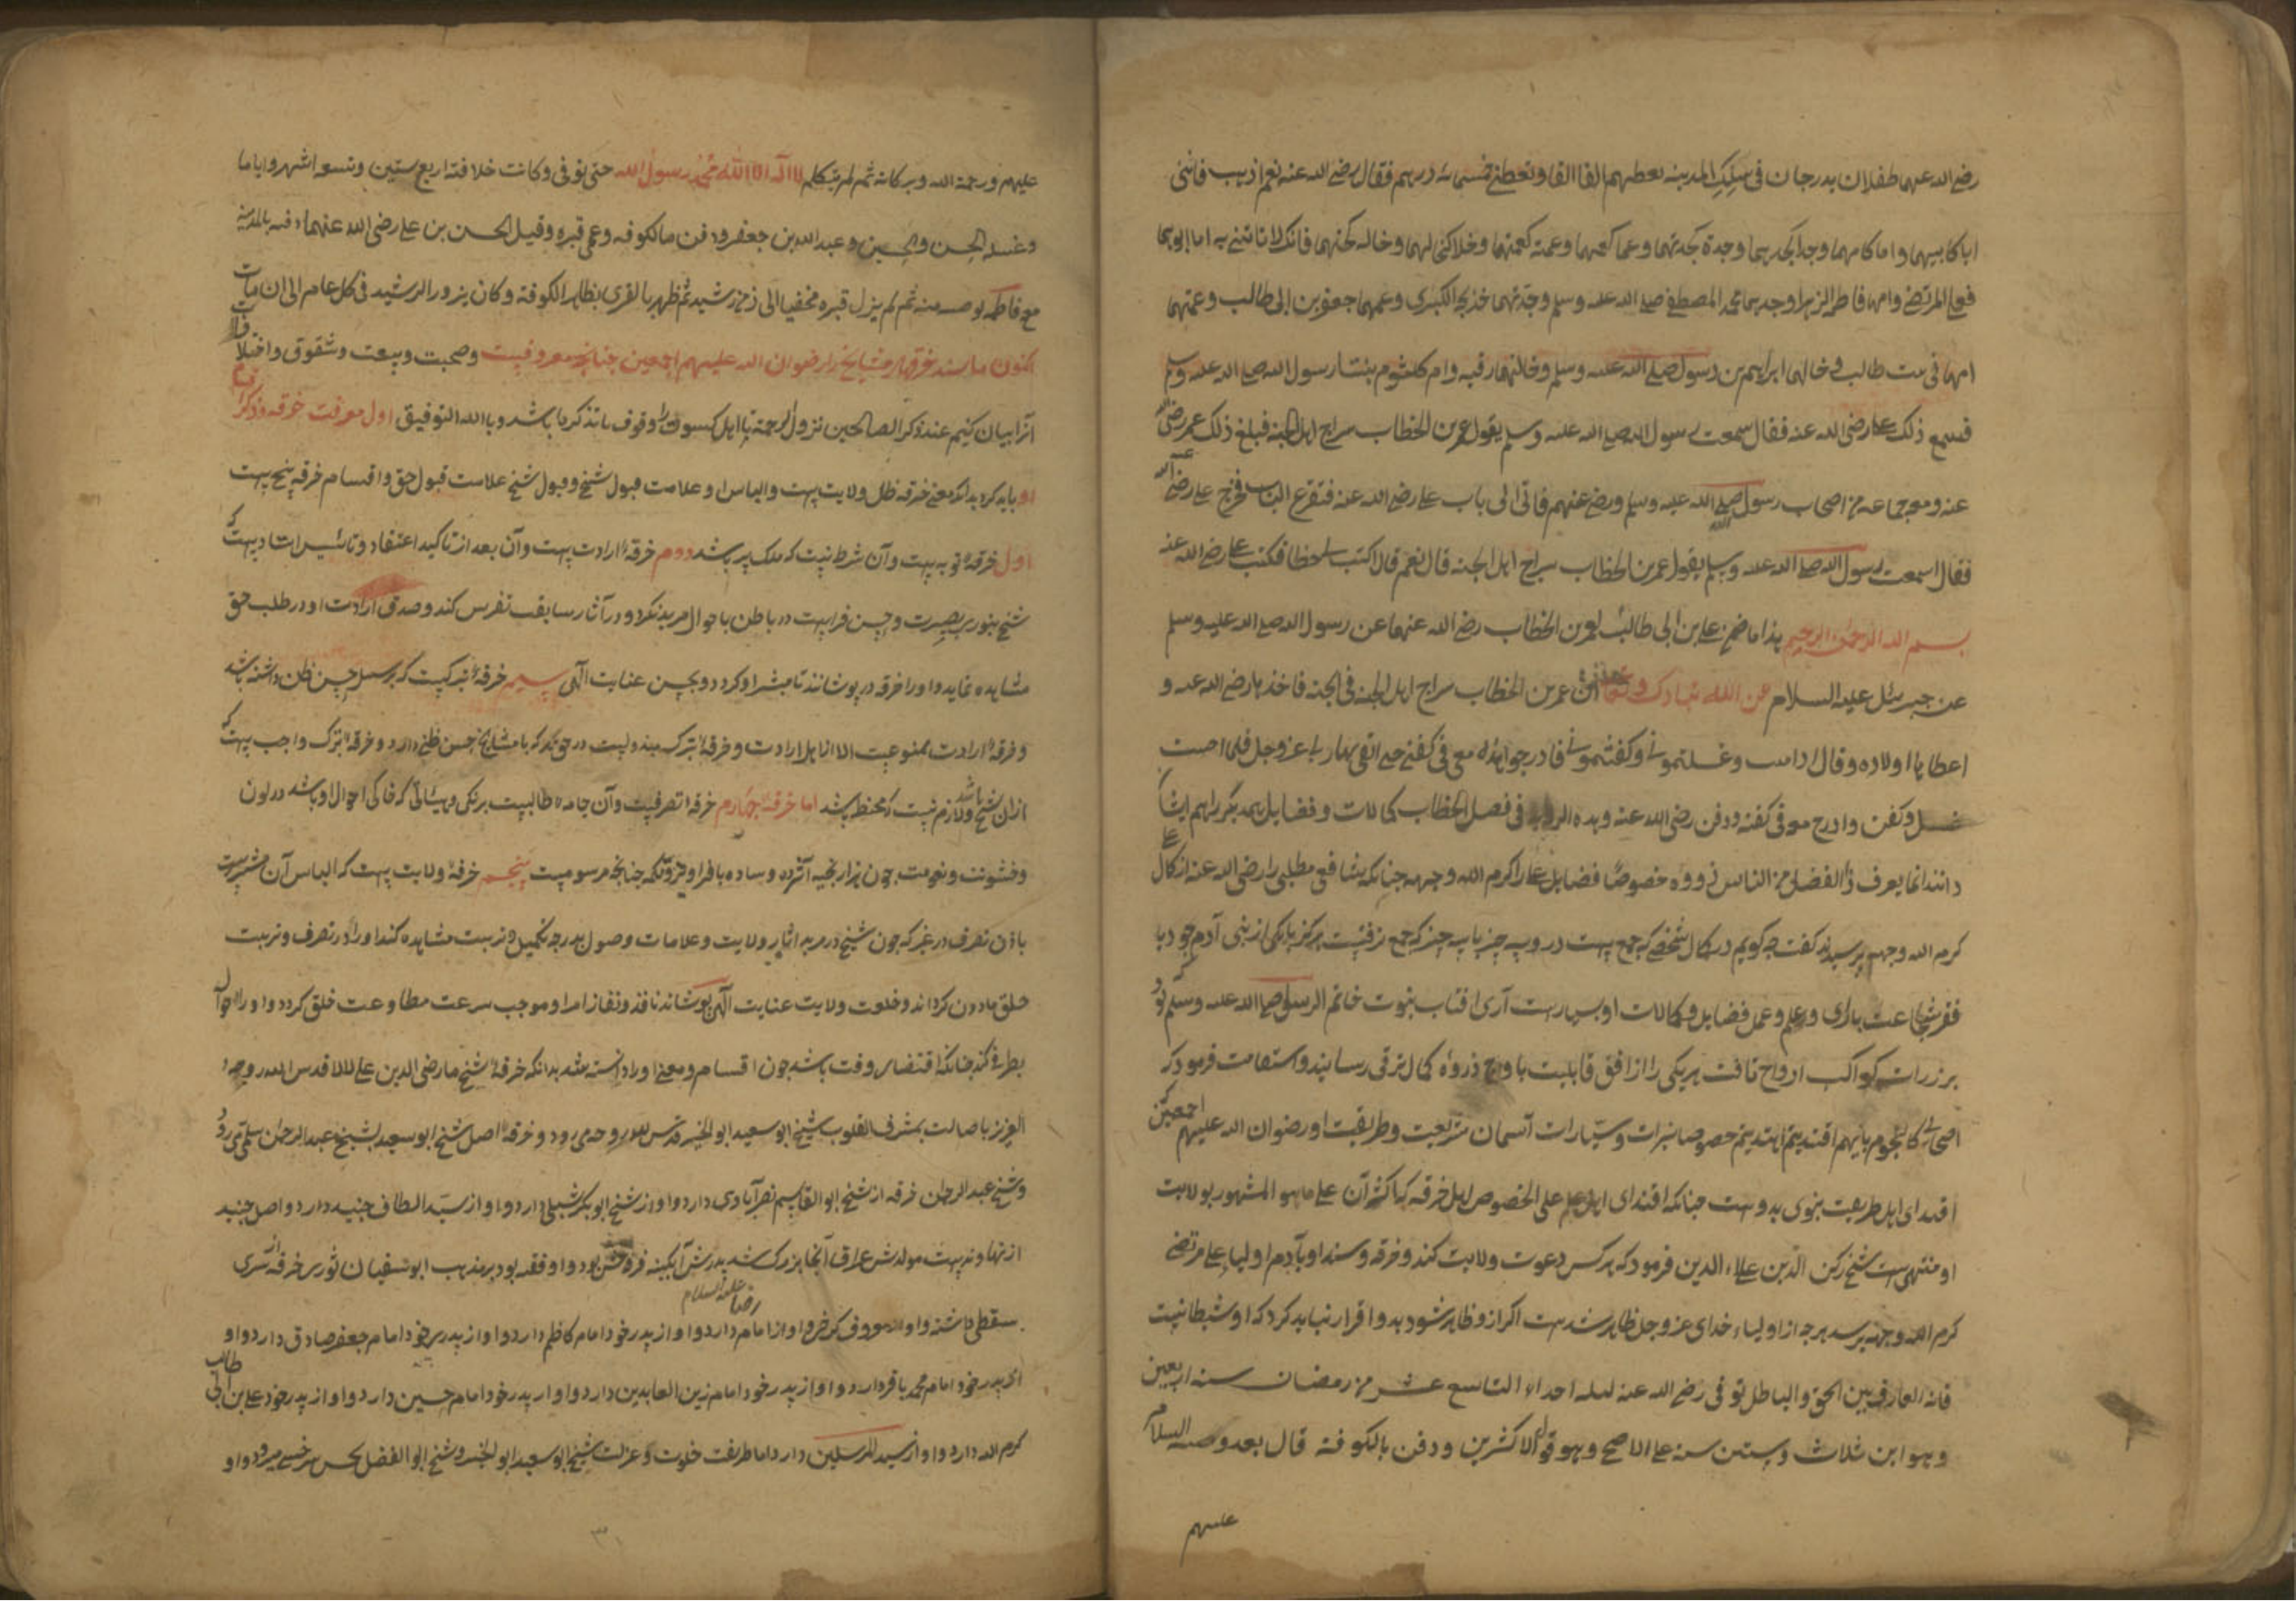 رضی الله عنهما طفلان یدرجان فی سکک المدینه تعطیهم الفا الفا وتعطینی خمسمائه درهم فقال رضی الله عنه نعم اذهب فائتنی
ابا کابیهما و اما کامهما وجدا کجدیهما وجدة کجدتهما وعما کعمهما وعمة کعمتهما وخالا کخالهما وخاله کخالتهما فانک لا تاتنی به اما ابوهما
فعلی المرتضی وامهما فاطمة الزهرا وجدهما محمد المصطفی صلی الله علیه وسلم وجدتهما خدیجة الکبری وعمهما جعفر بن ابی طالب وعمتهما
ام هانی بنت طالب وخالهما ابراهیم بن رسول صلی الله علیه وسلم وخالتهما رقیه وام کلثوم بنتا رسول الله صلی الله علیه وسلم
فسمع ذلک علی رضی الله عنه فقال سمعت رسول الله صلی الله علیه وسلم یقول عمر بن الخطاب سراج اهل الجنه فبلغ ذلک عمر رضی الله
عنه ومعه جماعه من اصحاب رسول صلی الله علیه وسلم ورضی عنهم فاتی الی باب علی رضی الله عنه فتقرع الباب فخرج علی رضی الله عنه
فقال اسمعت رسول الله صلی الله علیه وسلم یقول عمر بن الخطاب سراج اهل الجنه قال نعم قال اکتب لی خطا فکتب علی رضی الله عنه
بسم الله الرحمن الرحیم هذا ما ضمن علی بن ابی طالب لعمر بن الخطاب رضی الله عنهما عن رسول الله صلی الله علیه وسلم
عن جبرئیل علیه السلام عن الله تبارک و تعالی ان عمر بن الخطاب سراج اهل الجنه فی الجنه فاخذها رضی الله عنه و
اعطاها اولاده وقال اذا مت وغسلتمونی وکفنتمونی فادرجوا هذه معی فی کفنی حتی القی بها ربی عزوجل فلما اصیب
غسل وکفن وادرج معه فی کفنه ودفن رضی الله عنه وهذه فی فصل الخطاب کمالات و فضایل همدیگر را هم ایشان
دانند انما یعرف ذا الفضل من الناس ذووه خصوصا فضایل علی را کرم الله وجهه چنانکه شافعی مطلبی را رضی الله عنه از کمال علی
کرم الله وجهه پرسیدند گفت چه گویم در کمال شخصی که جمع هست در وی سه چیز با سه چیز که جمع نرفتست هرگز با یکی از بنی آدم جود با
فقر شجاعت با رای و علم و عمل فضایل و کمالات او بسیارست آری افتاب نبوت خاتم الرسل صلی الله علیه وسلم که
بر ذرات کواکب ارواح تافت هر یکی را از افق قابلیت باوج ذروهٔ کمال ترقی رسانید و استقامت فرمود که
اصحابی کالنجوم بایهم اقتدیتم اهتدیتم خصوصا نیرات و سیارات آسمان شریعت و طریقت او رضوان الله علیهم اجمعین
اقتدای اهل طریقت بدوست چنانکه اقتدای اهل علم علی الخصوص اهل خرقه که اکثر آن علی ما هو المشهور بولایت
او منتهی ست شیخ رکن الدین علاء الدین فرمود که هر کس دعوت ولایت کند و خرقه و سند او باز دم اولیا علی مرتضی
کرم الله وجهه نرسد هر چه از اولیاء خدای عزوجل ظاهر شدست اگر از و ظاهر شود بدو اقرار نباید کرد که او شیطانیت
فانه العارف بین الحق والباطل توفی رضی الله عنه لیله احد التاسع عشر من رمضان سنه اربعین
وهو ابن ثلاث وستین سنه علی الاصح وهو قول الاکثرین ودفن بالکوفة قال بعد وصیته السلام
علیهم
علیهم ورحمة الله وبرکاته ثم لم یتکلم لا اله الا الله محمد رسول الله حتی توفی وکانت خلافته اربع سنین وتسعه اشهر وایاما
وغسله الحسن والحسین وعبدالله بن جعفر ودفن بالکوفه وعمی قبره وقیل الحسن بن علی رضی الله عنهما دفنه بالمدینه
مع فاطمه بوصیه منه ثم لم یزل قبره مخفیا الی زمن رشید ثم ظهر بالغری بظاهر الکوفة وکان یزور الرشید فی کل عام الی ان مات
اکنون ما سند خرقهٔ مشایخ را رضوان الله علیهم اجمعین چنانچه معروفیت وصحبت وبیعت وشقوق واختلافات
آنرا بیان کنیم عند ذکر الصالحین تنزل الرحمة تا اهل کسوت را وقوف باشد وبالله التوفیق اول معرفت خرقه وذکر اقسام
او باید کرد بدانکه معنی خرقه ظل ولایت پیرست والباس او علامت قبول شیخ وقبول شیخ علامت قبول حق واقسام خرقه پنج هست
اول خرقهٔ توبه هست وآن شرط نیست که ملک پیر باشد دوم خرقهٔ ارادت هست وآن بعد از تاکید اعتقاد و تاسیس ارادت هست که
شیخ بنور بصیرت وحسن فراست در باطن باحوال مرید نگرد ودر آثار سابقت تفرس کند وصدق ارادت او در طلب حق
مشاهده نماید و او را خرقه در پوشاند تا مبشر او گردد وبحسن عنایت الهی سیم خرقهٔ تبرکست که بر سبیل حسن ظن داشته باشد
وخرقهٔ ارادت ممنوعست الا از اهل ارادت وخرقهٔ تبرک مبذولست در حق هر که با مشایخ حسن ظنی دارد وخرقهٔ تبرک واجب هست که
ازان شیخ باشد ولازم نیست که محفظ باشد اما خرقهٔ چهارم خرقهٔ تصرفیت وآن جامهٔ طالبیت برنگی وهیئاتی که حال احوال او باشد در لون
وخشونت ونعومت چون هزار بخیه آژده وساده چنانچه مرسومیت پنجم خرقهٔ ولایت هست که الباس آن مشیرست
باذن تصرف در غیر که چون شیخ در مرید اثار ولایت وعلامات وصول بدرجه تکمیل وتربیت مشاهده کند او را در تصرف وتربیت
خلق ماذون گرداند وخلعت ولایت عنایت الهی پوشاند نافذ ونفاذ امر او موجب سرعت مطاوعت خلق گردد
بطرف کند چنانکه اقتضای وقت باشد چون اقسام ومعنی او دانسته شد بدانکه خرقهٔ شیخ ما رضی الدین علی لالا قدس الله روحه
العزیز باصالت بمشرف القلوب شیخ ابو سعید ابو الخیر قدس الله روحه می رود وخرقهٔ اصل شیخ ابو سعید بشیخ عبدالرحمان سلمی می رود
وشیخ عبدالرحمان خرقه از شیخ ابوالقاسم نصر آبادی دارد واو از شیخ ابوبکر شبلی دارد واو از سید الطائف جنید دارد واصل جنید
از نهاوند هست مولدش عراق آنجا بزرگ شد پدرش آبگینه فروش بود واو فقیه بود بر مذهب ابو سفیان ثوری خرقه از سری
سقطی داشته واو از معروف کرخی واو از امام رضا علیه السلام دارد واو از پدر خود امام کاظم دارد واو از پدر خود امام جعفر صادق دارد واو
از پدر خود امام محمد باقر دارد واو از پدر خود امام زین العابدین دارد واو از پدر خود امام حسین دارد واو از پدر خود علی بن ابی طالب
کرم الله دارد واو از سید المرسلین دارد اما طریقت خلوت وعزلت شیخ ابو سعید ابو الخیر وشیخ ابو الفضل حسن سرخسی میرود واو